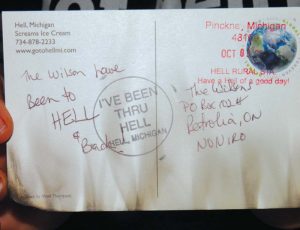 Hell, Michigan
Screams Ice Cream
734-878-2233
www.gotohellmi.com
The Wilson have
Been to
HELL
& Back
I'VE BEEN
THRU
HELL
HELL MICHIGAN
Pinckney, Michigan
OCT
HELL RURAL STA.
Have a Hell of a good day!
The Wilsons
PO Box
Petrolia, ON
N0N1R0